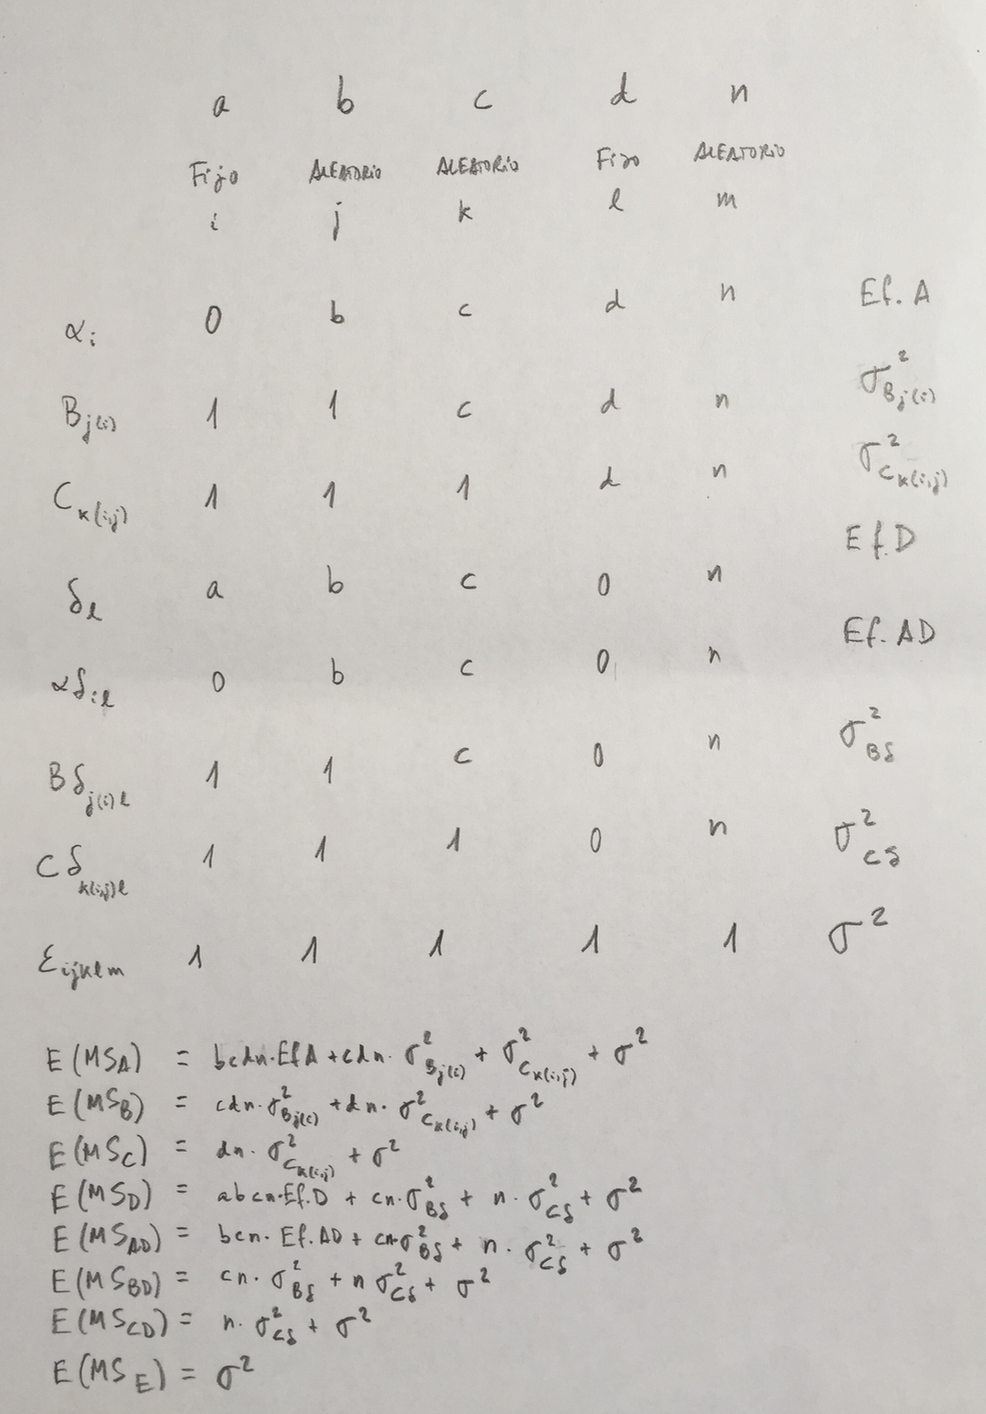 a b c d n
Fijo ALEATORIO ALEATORIO Fijo ALEATORIO
i j k l m
α_i 0 b c d n Ef. A
B_j(i) 1 1 c d n σ²_B_j(i)
C_k(i,j) 1 1 1 d n σ²_C_k(i,j)
δ_l a b c 0 n Ef.D
αδ_il 0 b c 0 n Ef. AD
Bδ_j(i)l 1 1 c 0 n σ²_Bδ
Cδ_k(i,j)l 1 1 1 0 n σ²_Cδ
ε_ijklm 1 1 1 1 1 σ²
E(MS_A) = bcdn·EfA + cdn·σ²_B_j(i) + σ²_C_k(i,j) + σ²
E(MS_B) = cdn·σ²_B_j(i) + dn·σ²_C_k(i,j) + σ²
E(MS_C) = dn·σ²_C_k(i,j) + σ²
E(MS_D) = abcn·Ef.D + cn·σ²_Bδ + n·σ²_Cδ + σ²
E(MS_AD) = bcn·Ef.AD + cn·σ²_Bδ + n·σ²_Cδ + σ²
E(MS_BD) = cn·σ²_Bδ + n σ²_Cδ + σ²
E(MS_CD) = n·σ²_Cδ + σ²
E(MS_E) = σ²